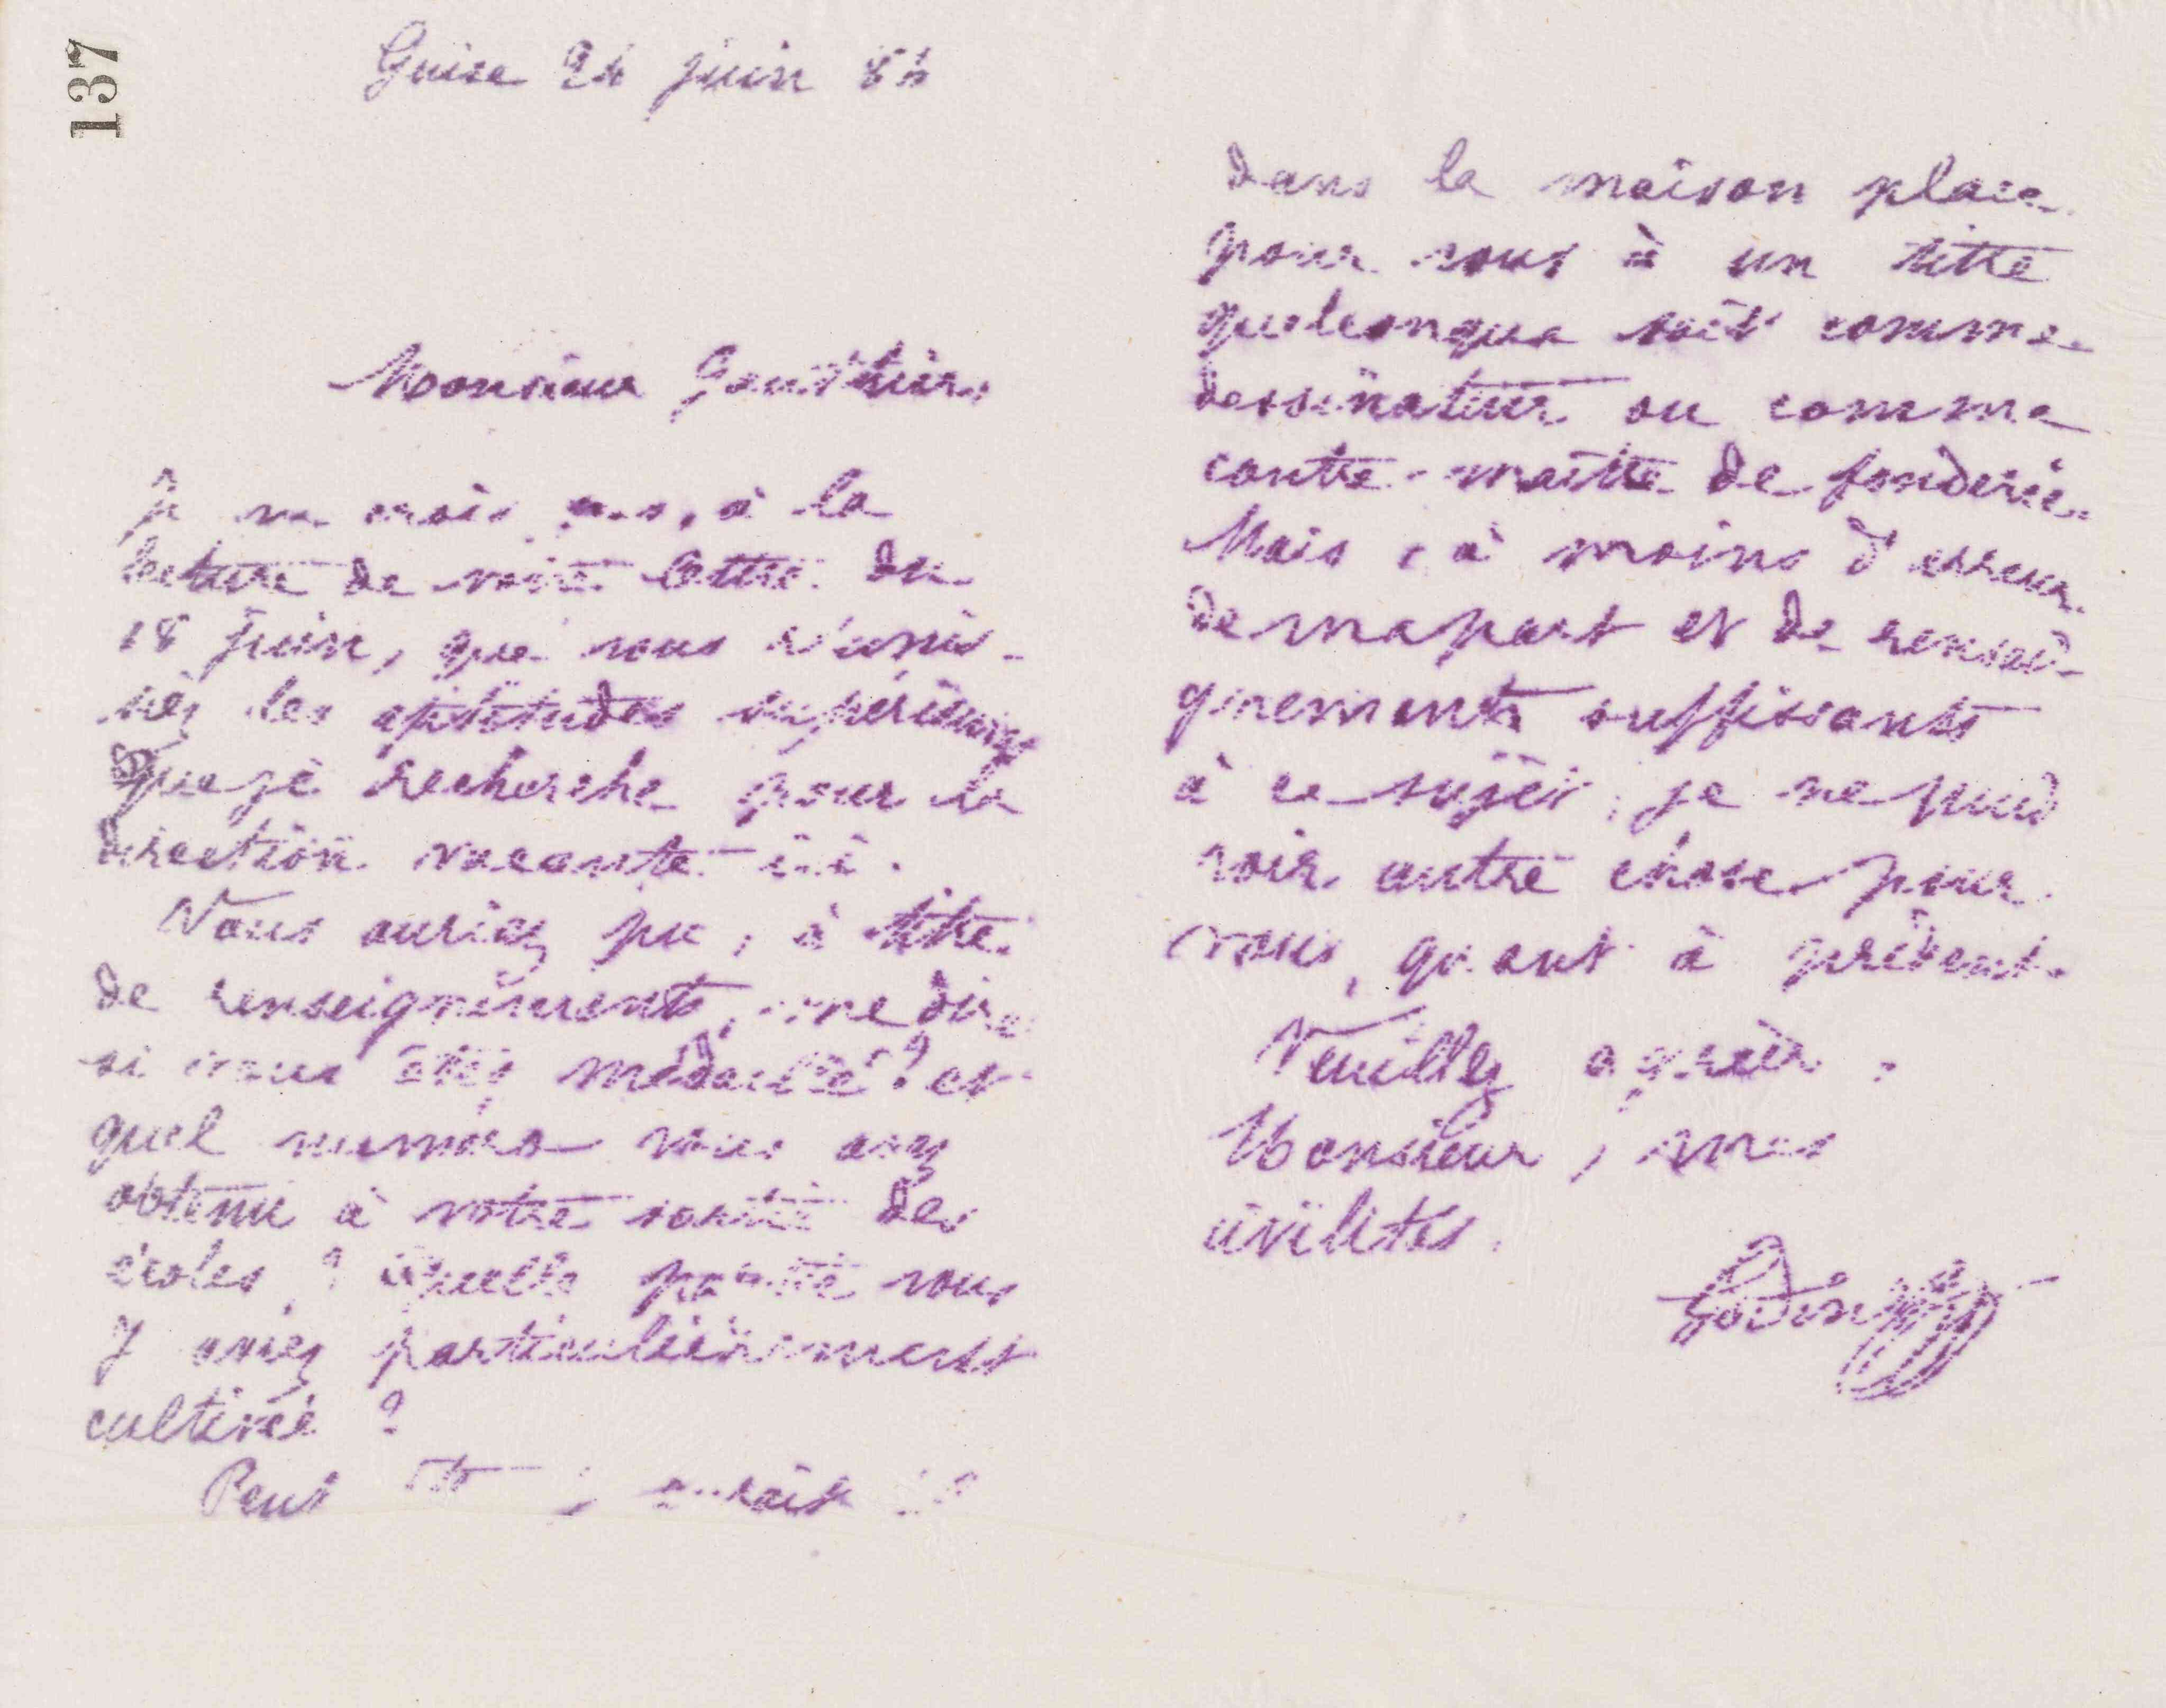 137
Guise 24 juin 84
Monsieur Gauthier
Je ne crois pas, à la
lecture de votre lettre du
18 juin, que vous réunis-
siez les aptitudes supérieures
que je recherche pour la
direction vacante ici.
Vous auriez pu, à titre
de renseignements, me dire
si vous étiez médaillé? et
quel numéro vous avez
obtenu à votre sortie des
écoles, ? quelle partie vous
y aviez particulièrement
cultivée ?
Peut être y aurait il
dans la maison place
pour vous à un titre
quelconque soit comme
dessinateur ou comme
contre-maître de fonderie.
Mais, à moins d'erreur
de ma part et de rensei-
gnements suffisants
à ce sujet, je ne puis
voir autre chose pour
vous, quant à présent.
Veuillez agréer,
Monsieur, mes
civilités.
Godin